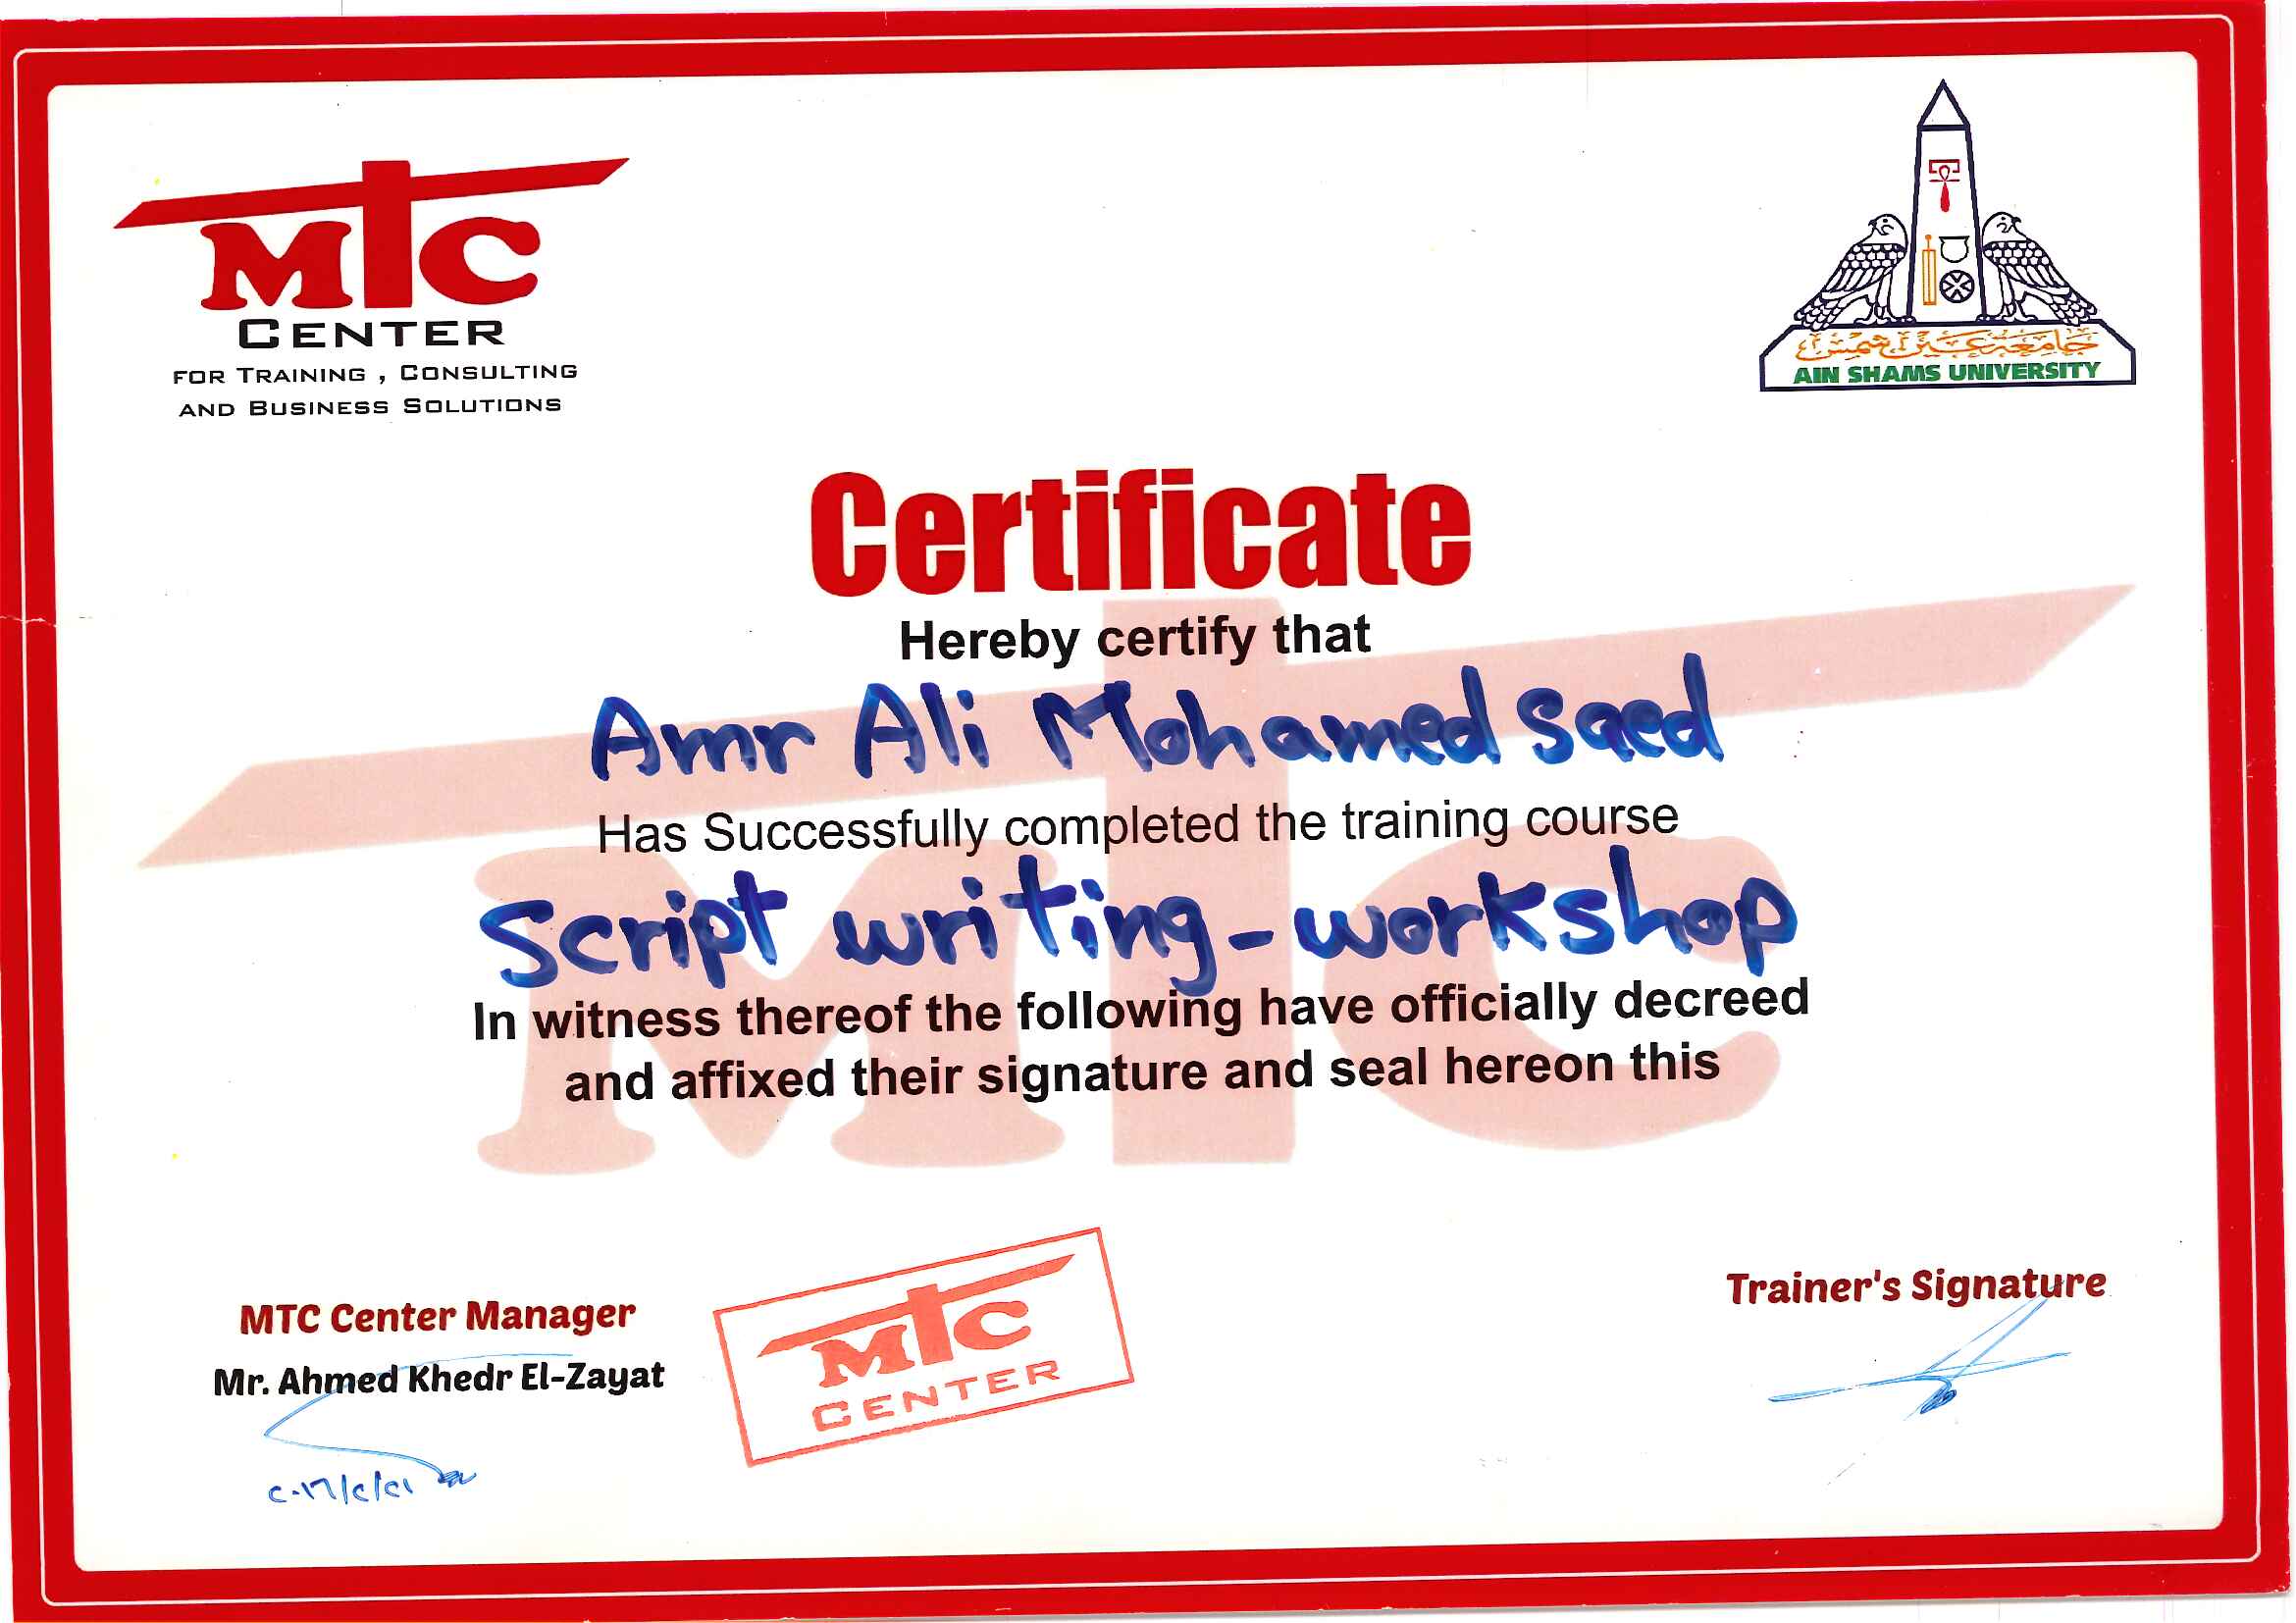 MTC
CENTER
FOR TRAINING , CONSULTING
AND BUSINESS SOLUTIONS
جامعة عين شمس
AIN SHAMS UNIVERSITY
Certificate
Hereby certify that
Amr Ali Mohamed Saed
Has Successfully completed the training course
Script writing-workshop
In witness thereof the following have officially decreed
and affixed their signature and seal hereon this
MTC Center Manager
Mr. Ahmed Khedr El-Zayat
MTC
CENTER
Trainer's Signature